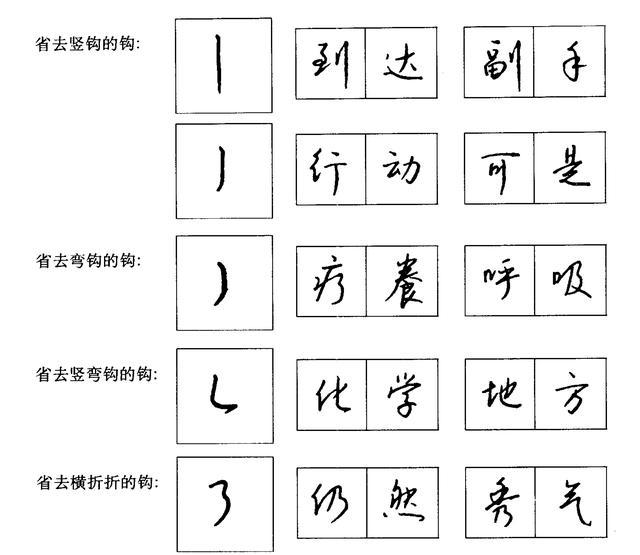 省去竖钩的钩: 到达 副手
行动 可是
省去弯钩的钩: 疗养 呼吸
省去竖弯钩的钩: 化学 地方
省去横折折的钩: 仍然 秀气